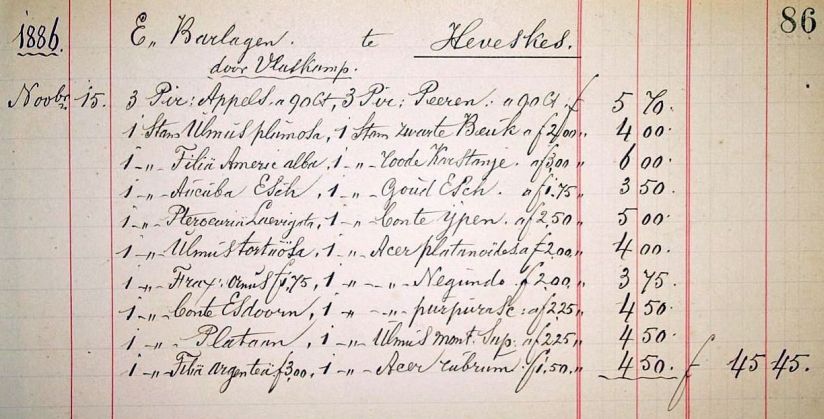 86
1886. E,, Barlagen. te Heveskes.
door Vlaskamp.
Novbr. 15. 3 Pir: Appels. a 90 Ct, 3 Pir: Peeren. a 90 Ct. f 5 70.
1 Stam Ulmus plumosa, 1 Stam zwarte Beuk a f 2,00 ,, 4 00.
1 -,,- Tilia Americ alba, 1 -,,- Roode Kastanje. a f 3,00 ,, 6 00.
1 -,,- Aucuba Esch, 1 -,,- Goud Esch. a f 1,75 ,, 3 50.
1 -,,- Pterocaria Laevigata, 1 -,,- Bonte Ypen. a f 2,50 ,, 5 00.
1 -,,- Ulmus tortuosa, 1 -,,- Acer platanoides a f 2,00 ,, 4 00.
1 -,,- Frax: ornus f 1,75, 1 -,,- -,,- Negundo. f 2,00 ,, 3 75.
1 -,,- Bonte Esdoorn, 1 -,,- -,,- purpurasc: a f 2,25 ,, 4 50.
1 -,,- Plataan, 1 -,,- Ulmus mont. Sup: a f 2,25 ,, 4 50.
1 -,,- Tilia argentea f 3,00, 1 -,,- Acer rubrum. f 1,50 ,, 4 50. f 45 45.